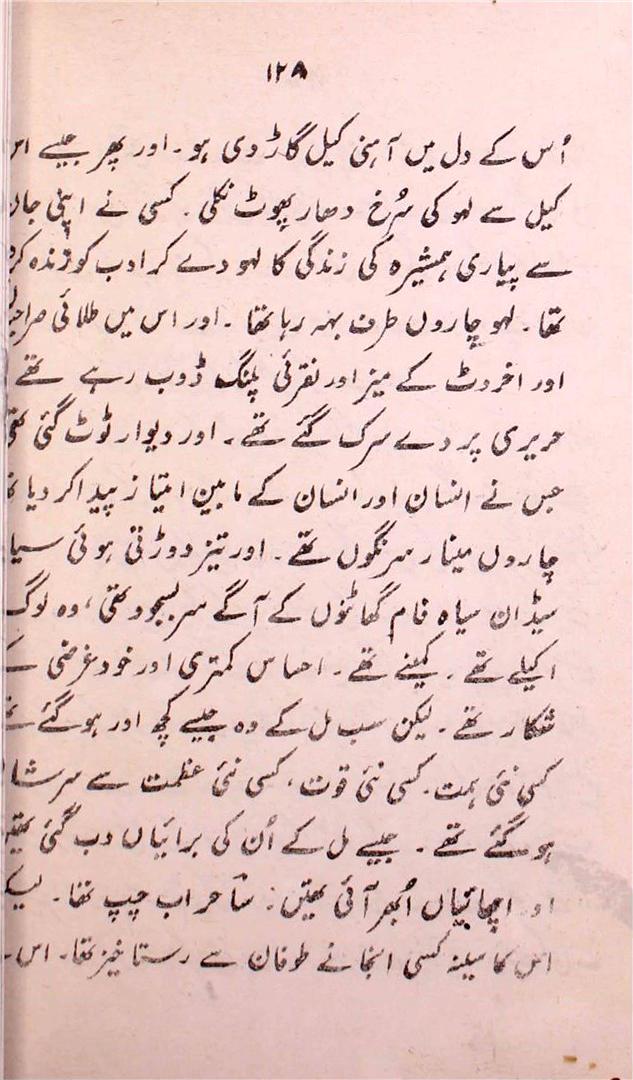 ۱۲۸
اُس کے دل میں آہنی کیل گاڑ دی ہو۔ اور پھر جیسے اس
کیل سے لہو کی سُرخ دھار پھوٹ نکلی۔ کسی نے اپنی جان
سے پیاری ہمشیرہ کی زندگی کا لہو دے کر ادب کو زندہ کر
تھا۔ لہو چاروں طرف بہہ رہا تھا۔ اور اس میں طلائی
اور اخروٹ کے میز اور نقرئی پلنگ ڈوب رہے تھے
حریری پردے سرک گئے تھے۔ اور دیوار ٹوٹ گئی تھی
جس نے انسان اور انسان کے مابین امتیاز پیدا کر دیا
چاروں مینار سرنگوں تھے۔ اور تیز دوڑتی ہوئی
سیڈان سیاہ فام گھاٹنوں کے آگے سر بسجود تھی، وہ لوگ
اکیلے تھے۔ کمینے تھے۔ احساس کمتری اور خود غرضی کے
شکار تھے۔ لیکن سب مل کے وہ جیسے کچھ اور ہو گئے
کسی نئی ہمت۔ کسی نئی قوت، کسی نئی عظمت سے
ہو گئے تھے۔ جیسے مل کے اُن کی برائیاں دب گئی تھیں
اور اچھائیاں اُبھر آئی تھیں۔ شاعر اب چپ تھا۔
اس کا سینہ کسی انجانے طوفان سے رستاخیز تھا۔ اس